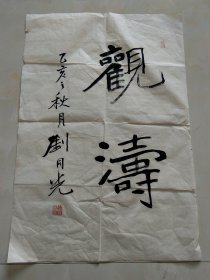 觀濤
乙亥秋月劉月光